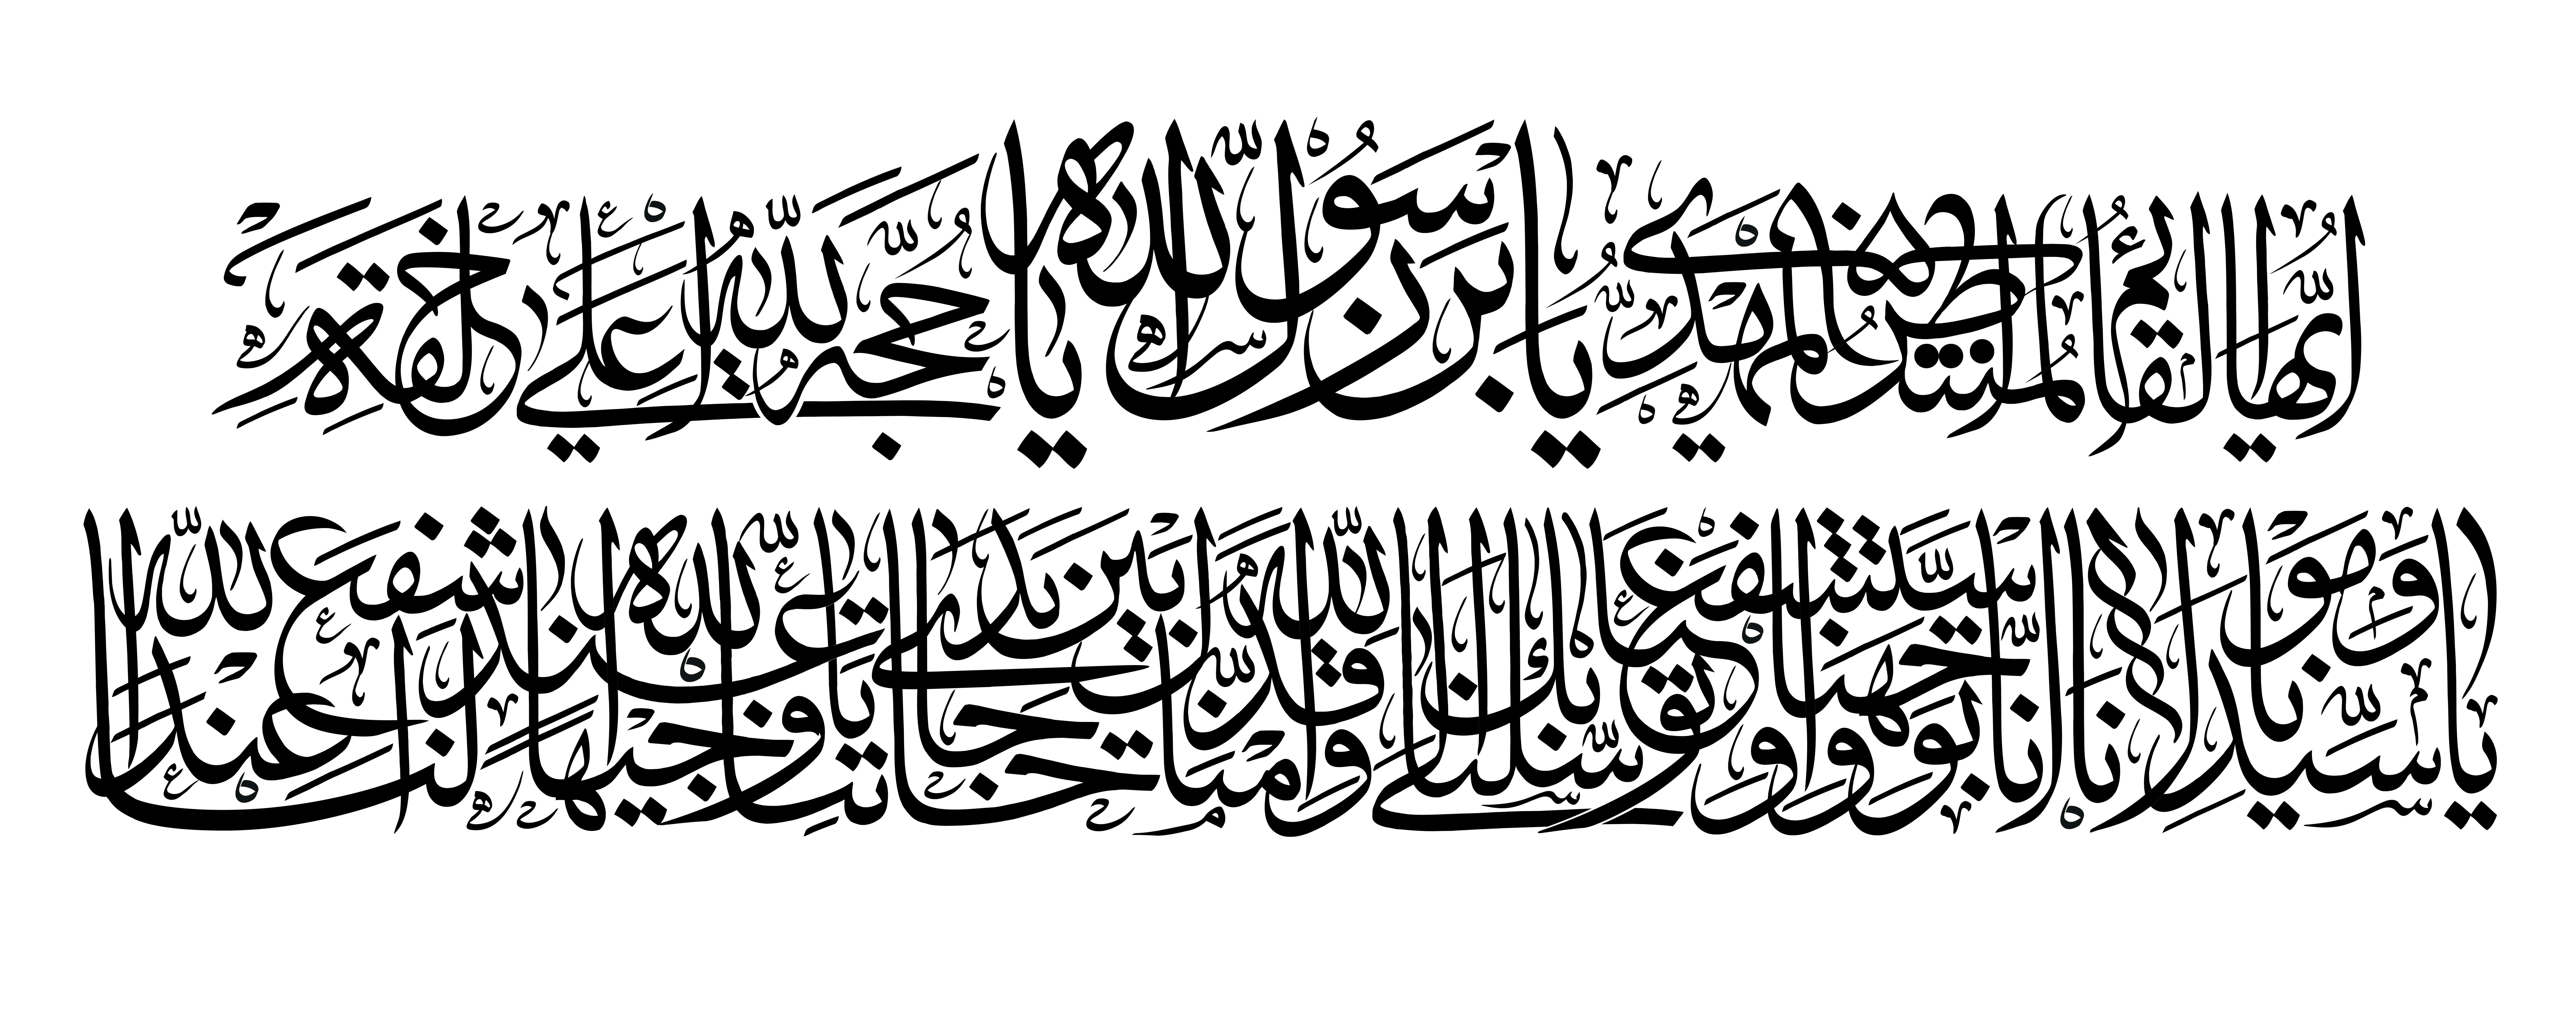 أيها القائم المنتظر المهدي يا ابن رسول الله يا حجة الله على خلقه
يا سيدنا ومولانا إنا توجهنا واستشفعنا وتوسلنا بك إلى الله وقدمناك بين يدي حاجاتنا يا وجيها عند الله اشفع لنا عند الله